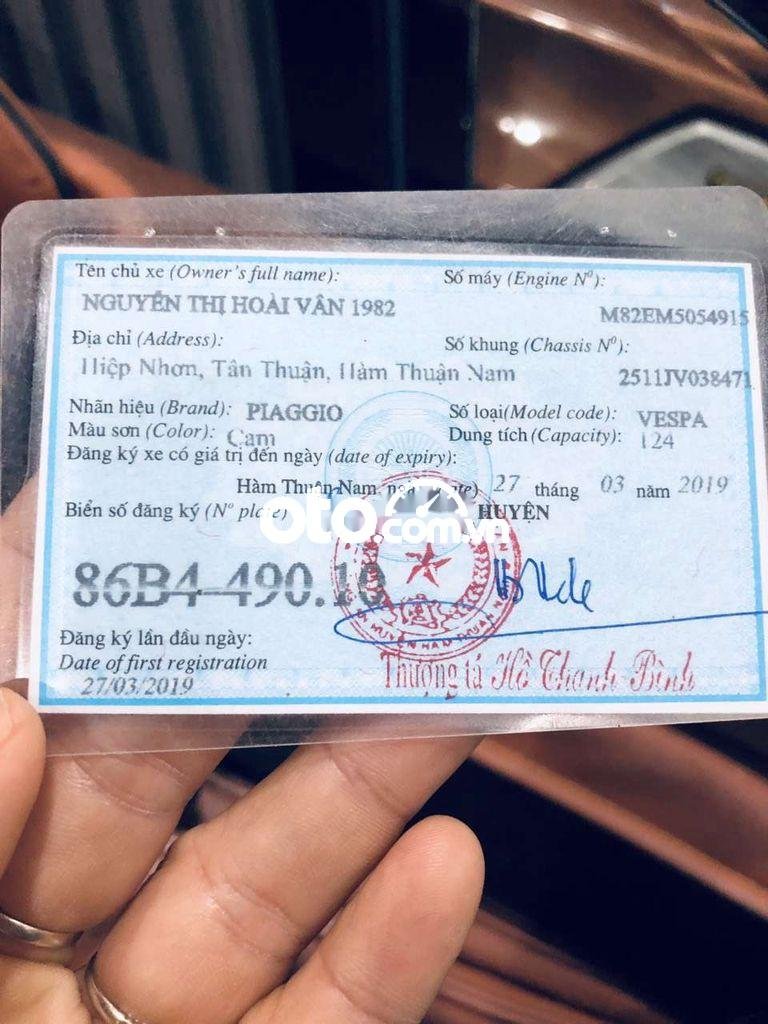 Tên chủ xe (Owner's full name):
NGUYỄN THỊ HOÀI VÂN 1982
Số máy (Engine Nº):
M82EM5054915
Địa chỉ (Address):
Hiệp Nhơn, Tân Thuận, Hàm Thuận Nam
Số khung (Chassis Nº):
2511JV038471
Nhãn hiệu (Brand): PIAGGIO
Số loại(Model code): VESPA
Màu sơn (Color): Cam
Dung tích (Capacity): 124
Đăng ký xe có giá trị đến ngày (date of expiry):
Hàm Thuận Nam, 27 tháng 03 năm 2019
Biển số đăng ký (Nº plate)
HUYỆN
oto.com.vn
86B4-490.10
Đăng ký lần đầu ngày:
Date of first registration
27/03/2019
Thượng tá Hồ Thanh Bình